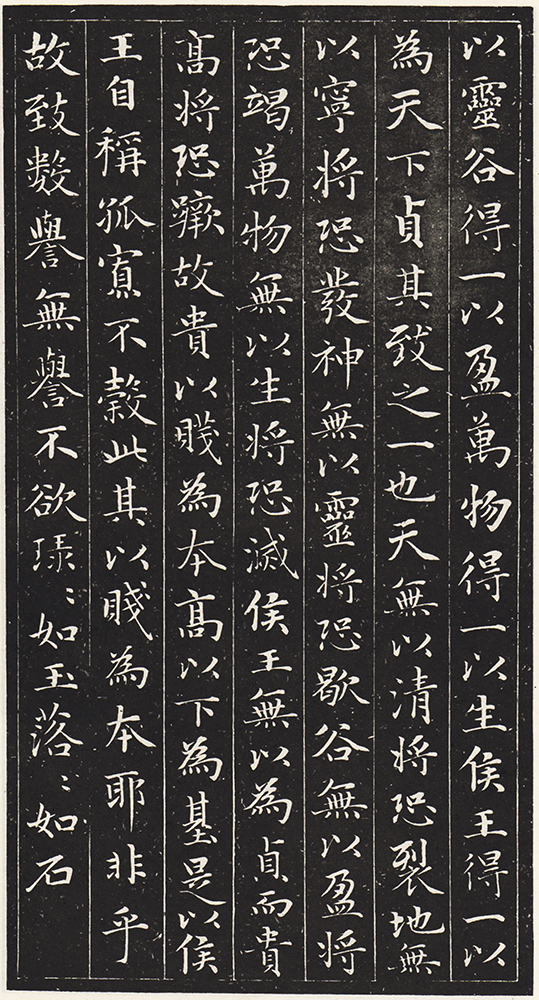 以靈谷得一以盈萬物得一以生侯王得一以
為天下貞其致之一也天無以清將恐裂地無
以寧將恐發神無以靈將恐歇谷無以盈將
恐竭萬物無以生將恐滅侯王無以為貞而貴
高將恐蹶故貴以賤為本高以下為基是以侯
王自稱孤寡不穀此其以賤為本耶非乎
故致數譽無譽不欲琭〻如玉落〻如石